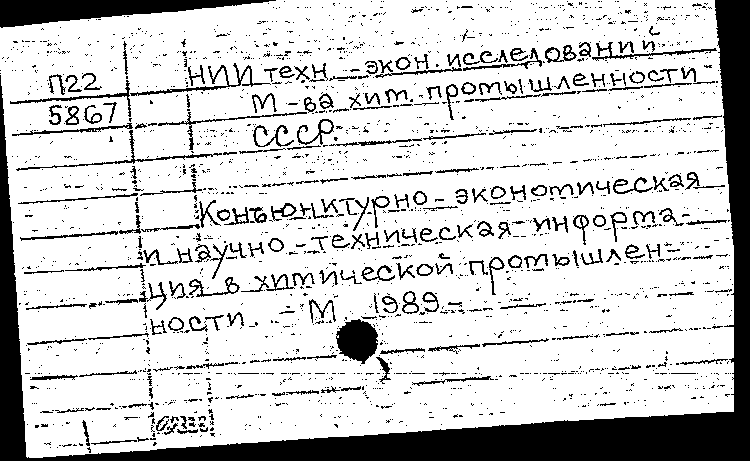 П22
5867
НИИ техн.-экон. исследований
М-ва хим. промышленности
СССР.
Конъюнктурно-экономическая
и научно-техническая информа-
ция в химической промышлен-
ности. - М 1989-